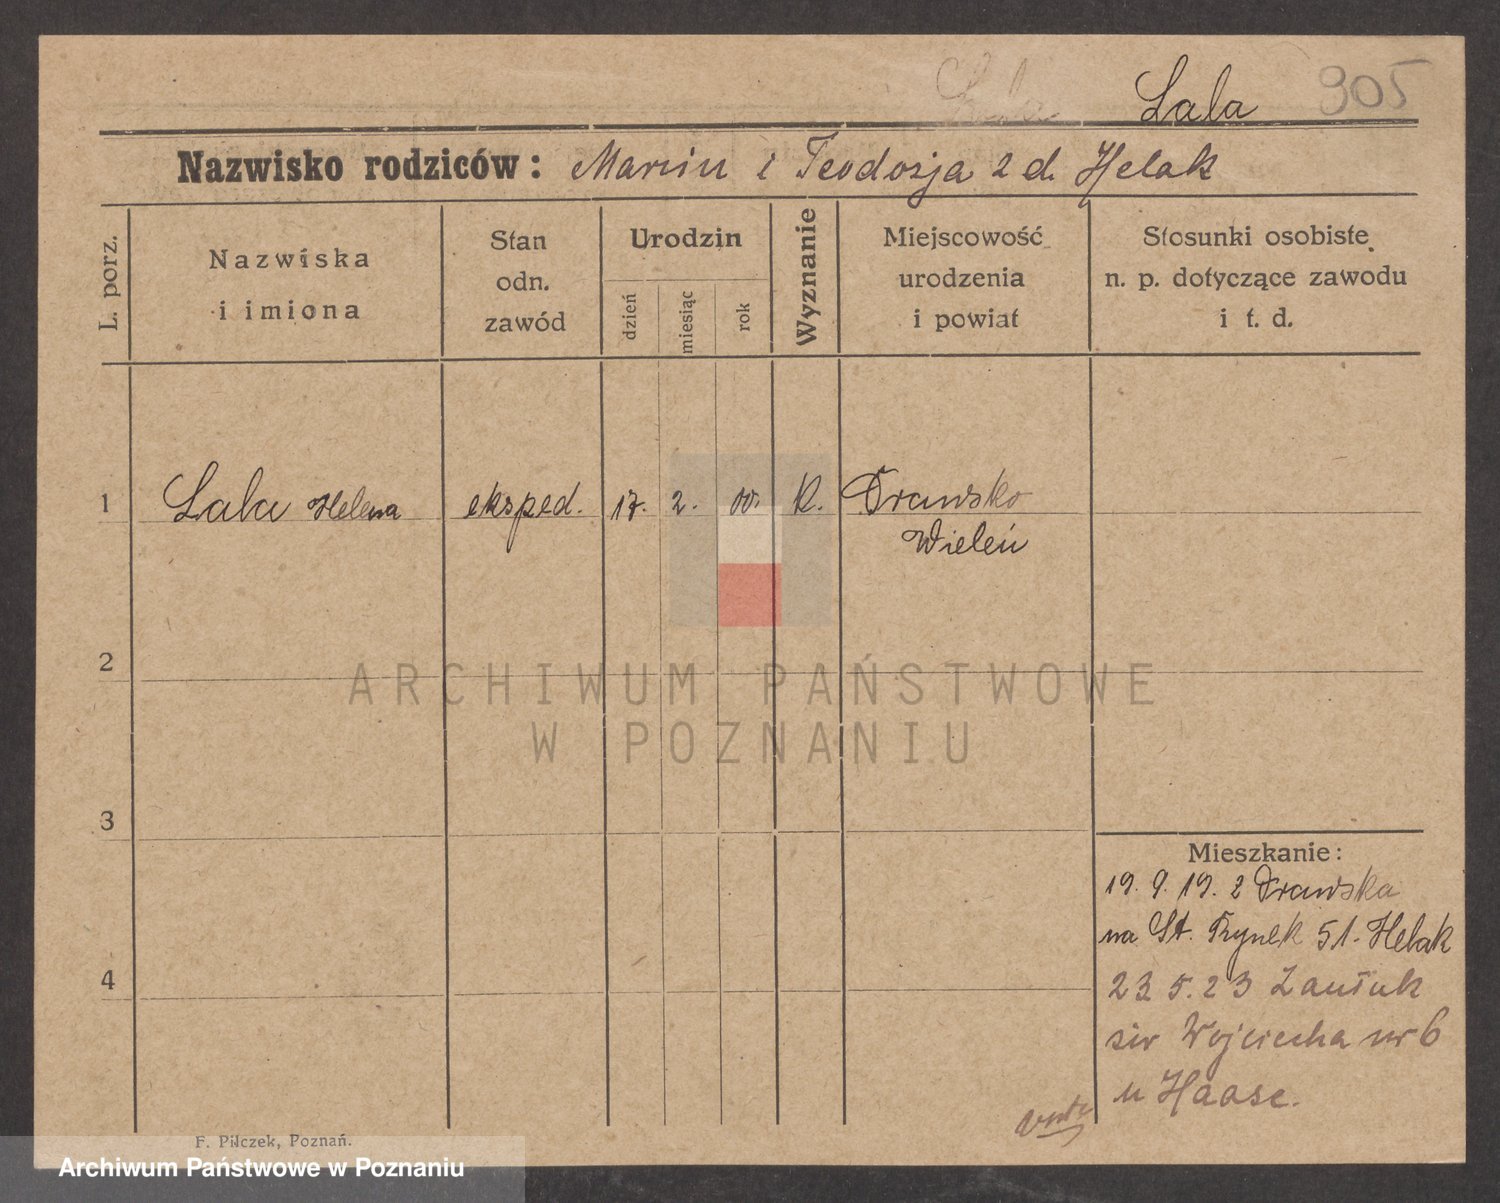 Lala 905
Nazwisko rodziców: Marcin i Teodozja z d. Helak
L. porz.
Nazwiska
i imiona
Stan
odn.
zawód
Urodzin
dzień
miesiąc
rok
Wyznanie
Miejscowość
urodzenia
i powiat
Stosunki osobiste
n. p. dotyczące zawodu
i t. d.
1 Lala Helena eksped. 17. 2. 00. K. Drawsko
Wieleń
2
3
4
ARCHIWUM PAŃSTWOWE
W POZNANIU
Mieszkanie:
19. 9. 19. z Drawska
na St. Rynek 51. Helak
23 5. 23 Zaułek
św Wojciecha nr 6
u Haase.
F. Pilczek, Poznań.
Archiwum Państwowe w Poznaniu